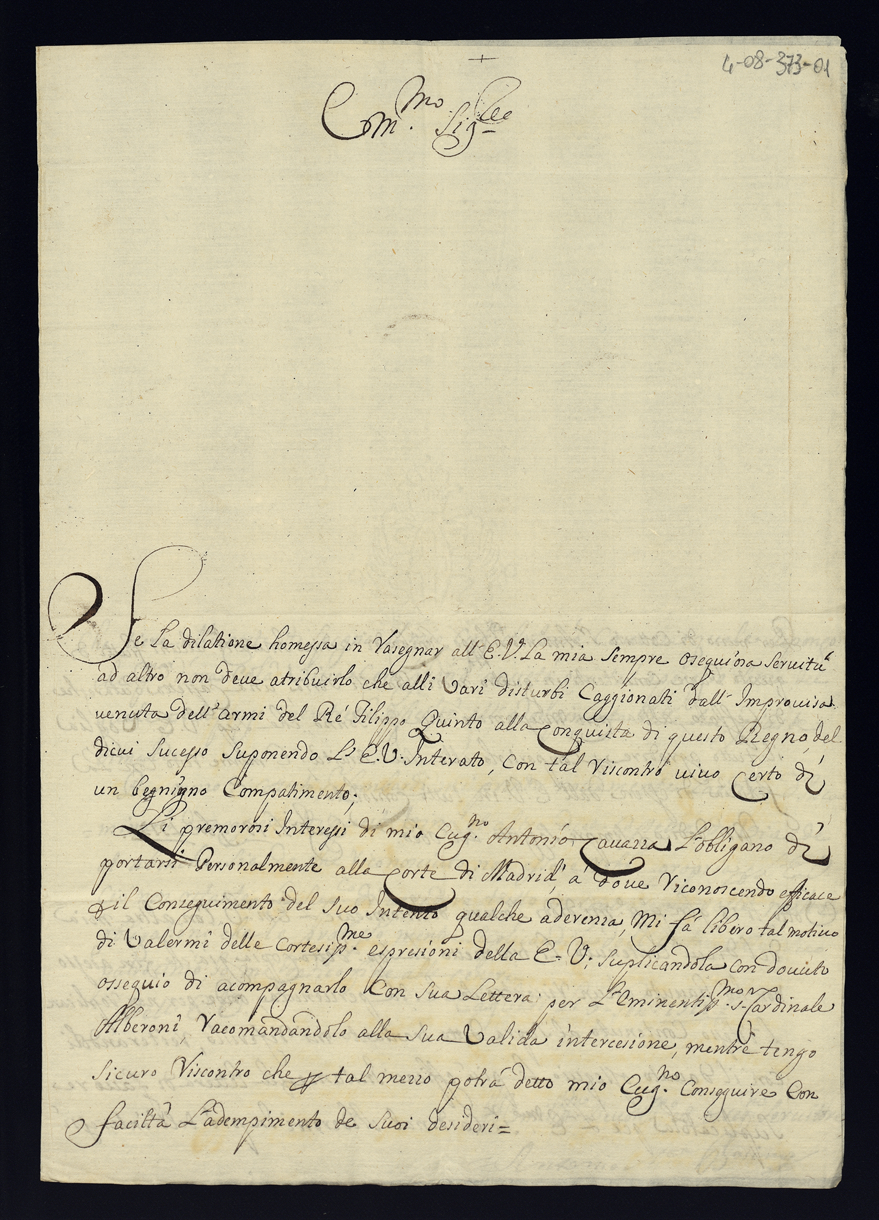 4-08-373-01
+
Com.mo Sig.re
Se La dilatione homessa in Rasegnar all' E. V. La mia sempre osequiosa Servitù
ad altro non deve atribuirlo che alli vari disturbi Caggionati dall' Improvisa
venuta dell' armi del Ré Filippo Quinto alla Conquista di questo Regno, del
dicui sucesso suponendo L' E. V. Interato, con tal Riscontro vivo Certo di
un begnigno Compatimento.
Li premorosi Interessi di mio Cug.no Antonio Cavazza L'obligano di
portarsi Personalmente alla Corte di Madrid, á dove Riconoscendo efficace
il Conseguimento del suo Intento qualche aderenza, Mi fá libero tal motivo
di Valermi delle Cortesiss.me espresioni della E. V. suplicandola con dovuto
ossequio di acompagnarlo Con sua Lettera per L'Eminentiss.mo S.r Cardinale
Alberoni Racomandandolo alla sua Valida intercesione, mentre tengo
sicuro Riscontro che tal mezzo potrá detto mio Cug.no Conseguire Con
faciltá L'adempimento de suoi desideri=